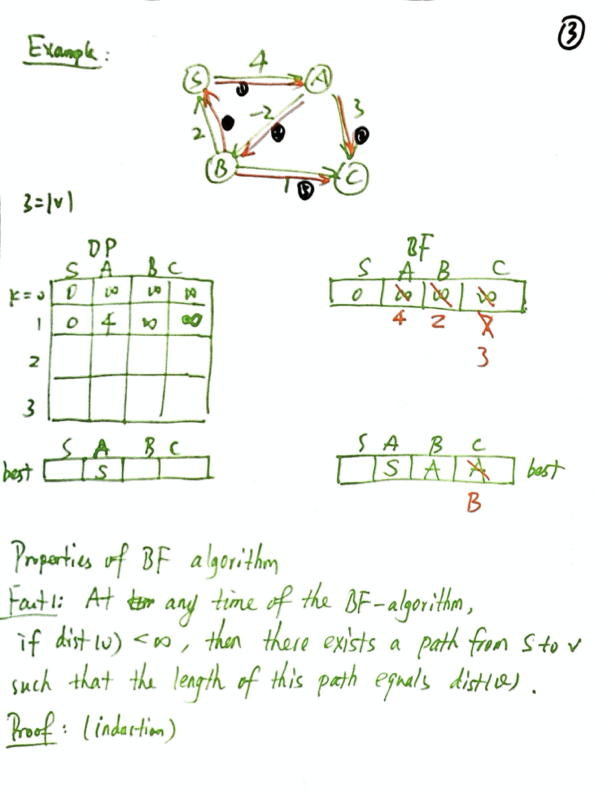 ③
Example:
4
S
A
-2
3
2
B
C
1
3=|V|
DP
S A B C
K=0 0 ∞ ∞ ∞
1 0 4 ∞ ∞
2
3
S A B C
best S
BF
S A B C
0 ∞ ∞ ∞
4 2 7
3
S A B C
S A A best
B
Properties of BF algorithm
Fact 1: At any time of the BF-algorithm,
if dist(v) < ∞, then there exists a path from S to v
such that the length of this path equals dist(v).
Proof: (induction)